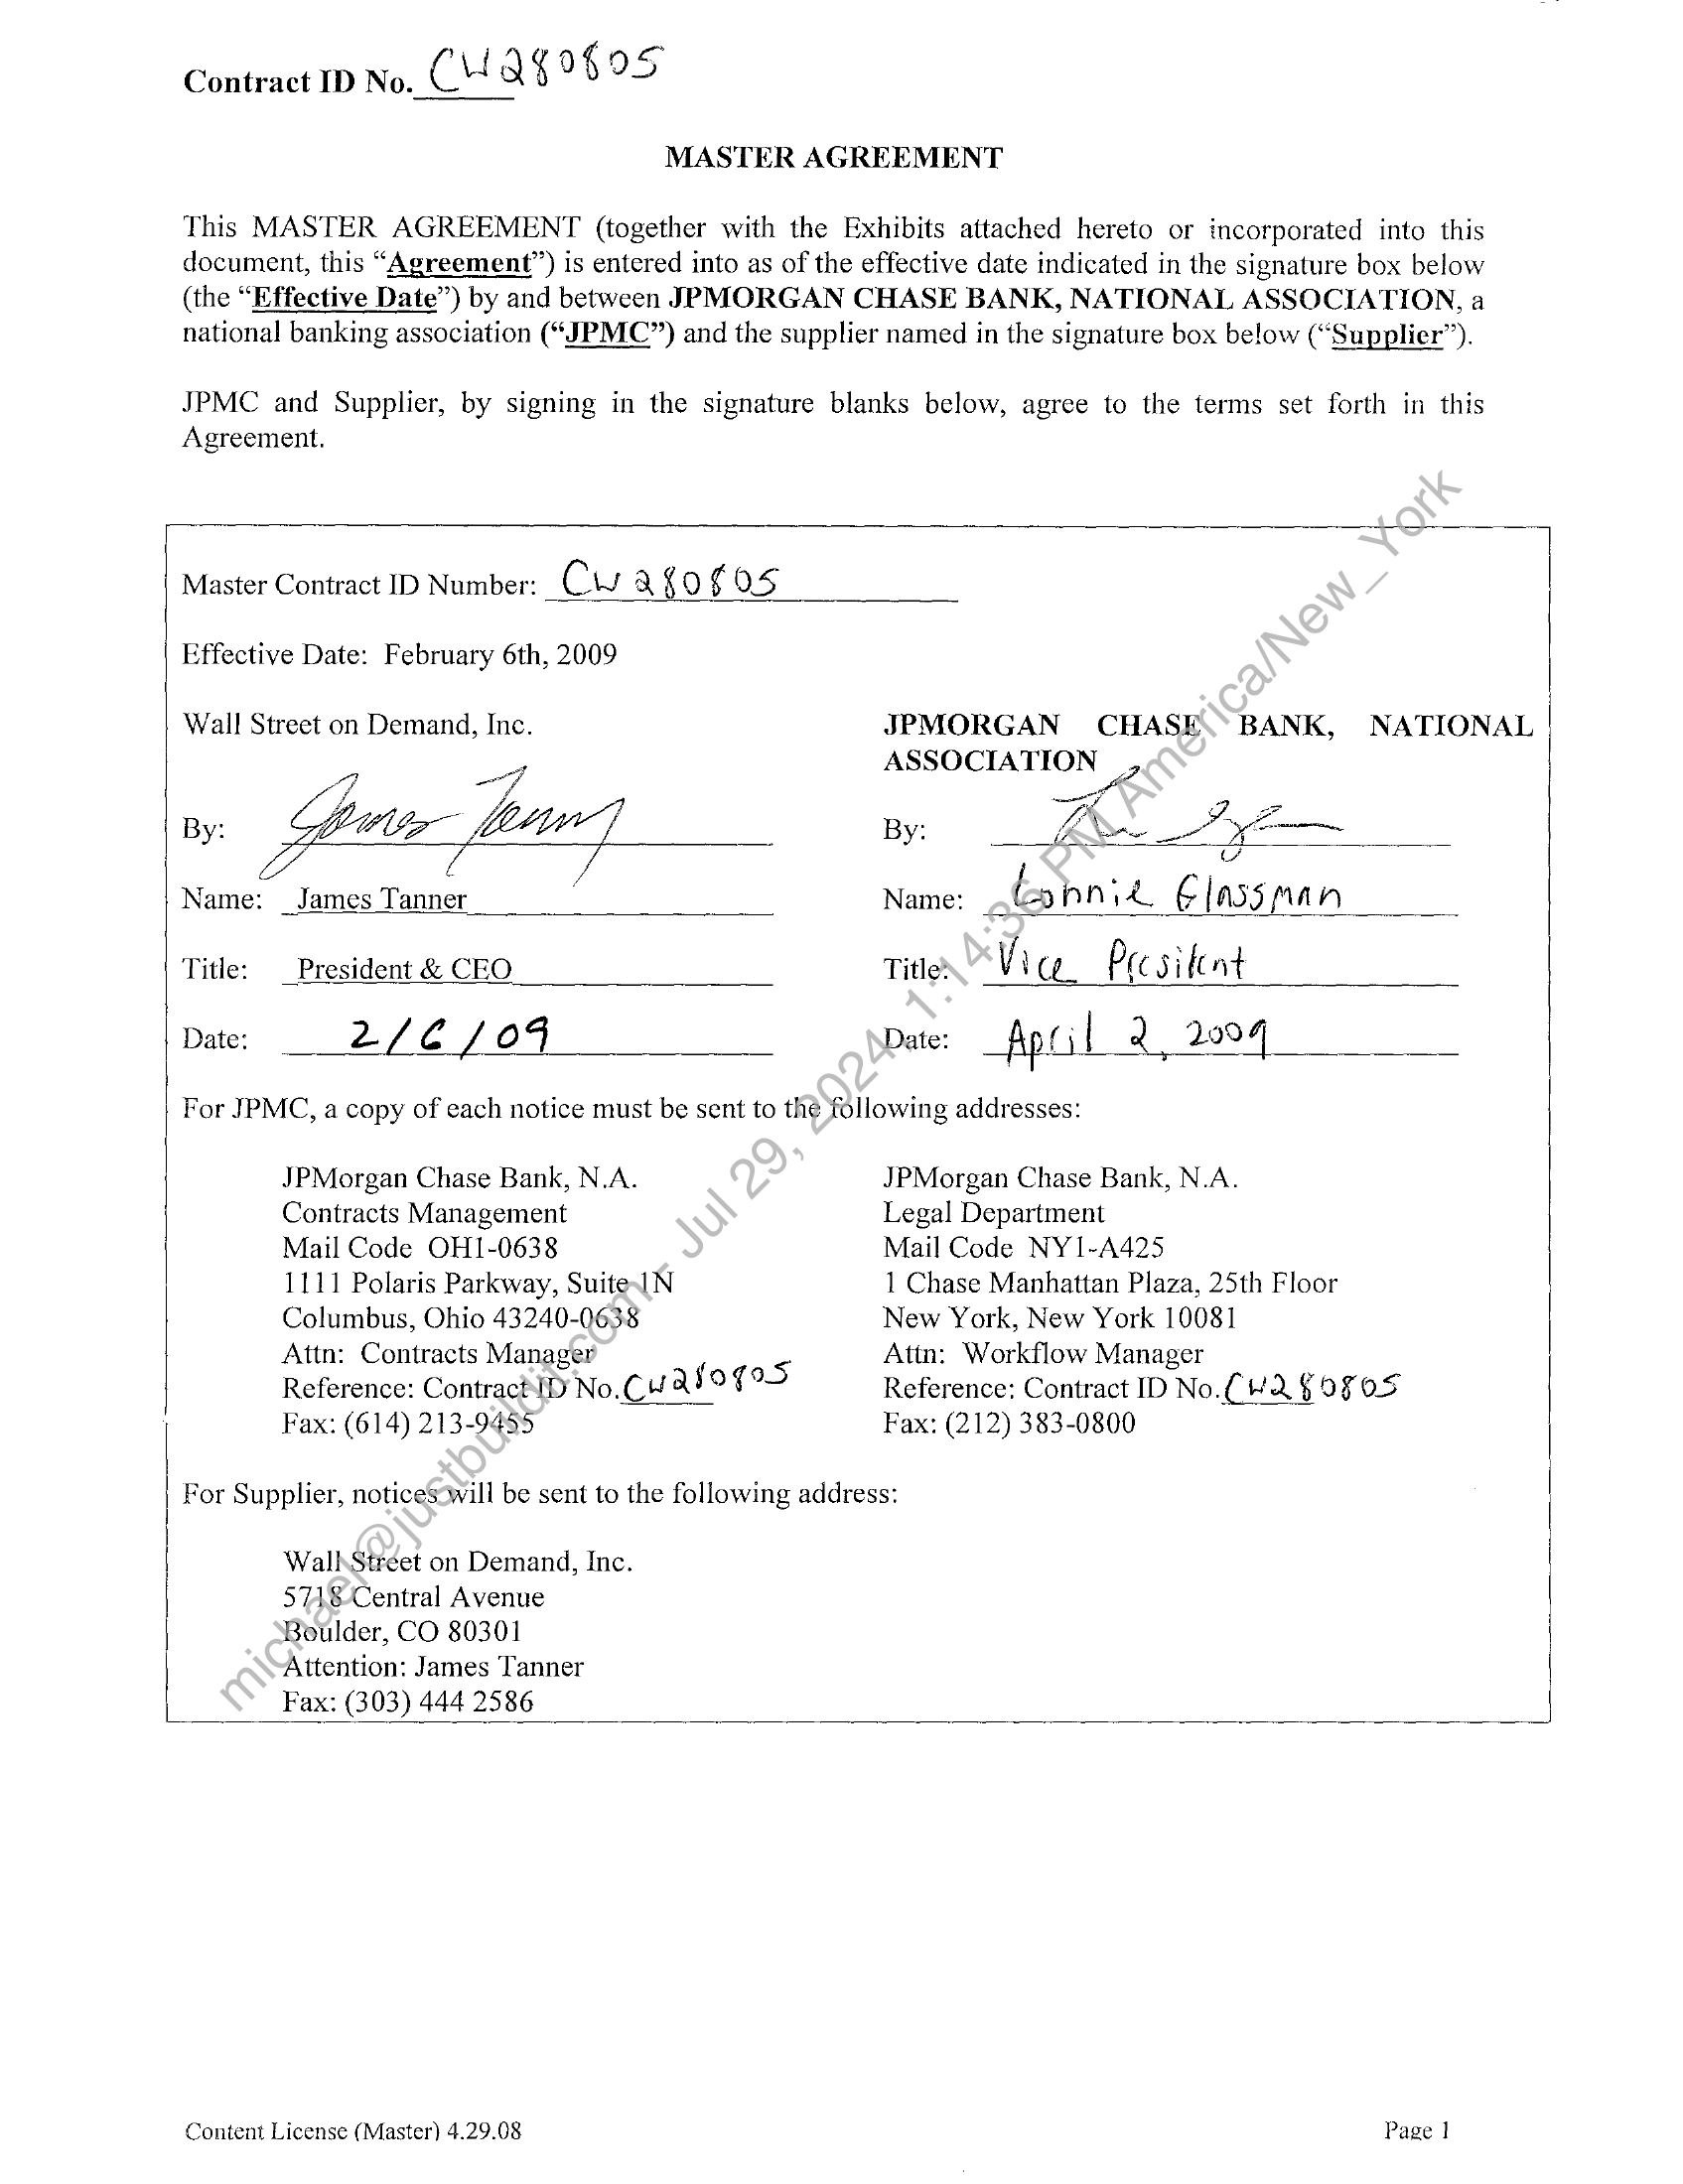 Contract ID No. CW280805
MASTER AGREEMENT
This MASTER AGREEMENT (together with the Exhibits attached hereto or incorporated into this
document, this “Agreement”) is entered into as of the effective date indicated in the signature box below
(the “Effective Date”) by and between JPMORGAN CHASE BANK, NATIONAL ASSOCIATION, a
national banking association (“JPMC”) and the supplier named in the signature box below (“Supplier”).
JPMC and Supplier, by signing in the signature blanks below, agree to the terms set forth in this
Agreement.
Master Contract ID Number: CW280805
Effective Date: February 6th, 2009
Wall Street on Demand, Inc.
By: James Tanner
Name: James Tanner
Title: President & CEO
Date: 2/6/09
JPMORGAN CHASE BANK, NATIONAL
ASSOCIATION
By:
Name: Lonnie Glassman
Title: Vice President
Date: April 2, 2009
For JPMC, a copy of each notice must be sent to the following addresses:
JPMorgan Chase Bank, N.A.
Contracts Management
Mail Code OH1-0638
1111 Polaris Parkway, Suite 1N
Columbus, Ohio 43240-0638
Attn: Contracts Manager
Reference: Contract ID No. CW280805
Fax: (614) 213-9455
JPMorgan Chase Bank, N.A.
Legal Department
Mail Code NY1-A425
1 Chase Manhattan Plaza, 25th Floor
New York, New York 10081
Attn: Workflow Manager
Reference: Contract ID No. CW280805
Fax: (212) 383-0800
For Supplier, notices will be sent to the following address:
Wall Street on Demand, Inc.
5718 Central Avenue
Boulder, CO 80301
Attention: James Tanner
Fax: (303) 444 2586
michael@justbuildit.com - Jul 29, 2024, 1:14:36 PM America/New_York
Content License (Master) 4.29.08
Page 1